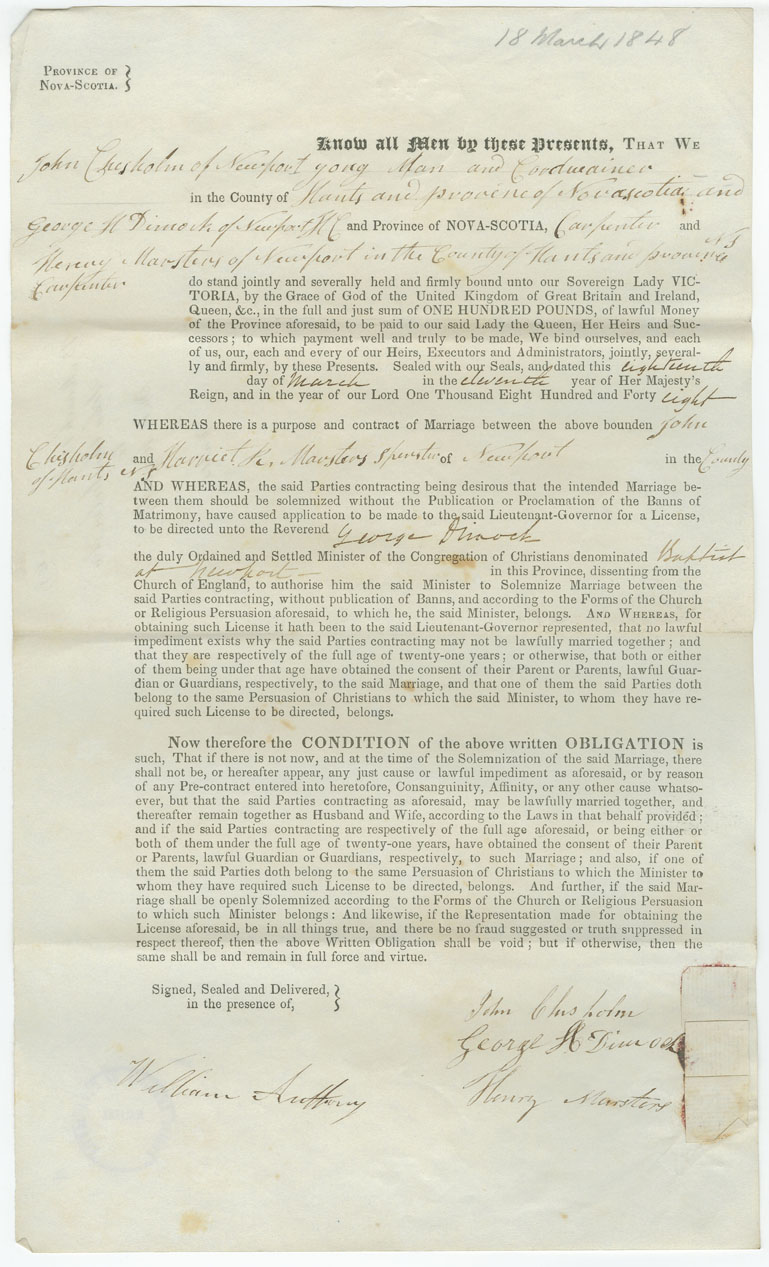 18 March 1848
PROVINCE OF
NOVA-SCOTIA. }
Know all Men by these Presents, THAT WE
John Chisholm of Newport yong Man and Cordwainer
in the County of Hants and province of Novascotia and
George H Dimock of Newport H C and Province of NOVA-SCOTIA, Carpenter and
Henery Marsters of Newport in the County of Hants and province N S
Carpenter do stand jointly and severally held and firmly bound unto our Sovereign Lady VIC-
TORIA, by the Grace of God of the United Kingdom of Great Britain and Ireland,
Queen, &c., in the full and just sum of ONE HUNDRED POUNDS, of lawful Money
of the Province aforesaid, to be paid to our said Lady the Queen, Her Heirs and Suc-
cessors; to which payment well and truly to be made, We bind ourselves, and each
of us, our, each and every of our Heirs, Executors and Administrators, jointly, several-
ly and firmly, by these Presents. Sealed with our Seals, and dated this eighteenth
day of March in the eleventh year of Her Majesty's
Reign, and in the year of our Lord One Thousand Eight Hundred and Forty eight
WHEREAS there is a purpose and contract of Marriage between the above bounden John
Chisholm and Harriet K. Marsters Spinster of Newport in the County
of Hants N.S
AND WHEREAS, the said Parties contracting being desirous that the intended Marriage be-
tween them should be solemnized without the Publication or Proclamation of the Banns of
Matrimony, have caused application to be made to the said Lieutenant-Governor for a License,
to be directed unto the Reverend George Dimock
the duly Ordained and Settled Minister of the Congregation of Christians denominated Baptist
at Newport in this Province, dissenting from the
Church of England, to authorise him the said Minister to Solemnize Marriage between the
said Parties contracting, without publication of Banns, and according to the Forms of the Church
or Religious Persuasion aforesaid, to which he, the said Minister, belongs. AND WHEREAS, for
obtaining such License it hath been to the said Lieutenant-Governor represented, that no lawful
impediment exists why the said Parties contracting may not be lawfully married together; and
that they are respectively of the full age of twenty-one years; or otherwise, that both or either
of them being under that age have obtained the consent of their Parent or Parents, lawful Guar-
dian or Guardians, respectively, to the said Marriage, and that one of them the said Parties doth
belong to the same Persuasion of Christians to which the said Minister, to whom they have re-
quired such License to be directed, belongs.
Now therefore the CONDITION of the above written OBLIGATION is
such, That if there is not now, and at the time of the Solemnization of the said Marriage, there
shall not be, or hereafter appear, any just cause or lawful impediment as aforesaid, or by reason
of any Pre-contract entered into heretofore, Consanguinity, Affinity, or any other cause whatso-
ever, but that the said Parties contracting as aforesaid, may be lawfully married together, and
thereafter remain together as Husband and Wife, according to the Laws in that behalf provided;
and if the said Parties contracting are respectively of the full age aforesaid, or being either or
both of them under the full age of twenty-one years, have obtained the consent of their Parent
or Parents, lawful Guardian or Guardians, respectively, to such Marriage; and also, if one of
them the said Parties doth belong to the same Persuasion of Christians to which the Minister to
whom they have required such License to be directed, belongs. And further, if the said Mar-
riage shall be openly Solemnized according to the Forms of the Church or Religious Persuasion
to which such Minister belongs: And likewise, if the Representation made for obtaining the
License aforesaid, be in all things true, and there be no fraud suggested or truth suppressed in
respect thereof, then the above Written Obligation shall be void; but if otherwise, then the
same shall be and remain in full force and virtue.
Signed, Sealed and Delivered,
in the presence of, }
John Chisholm
George H Dimock
William Anthony
Henry Marsters